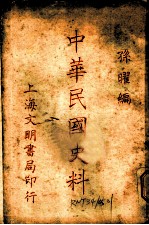 孫曜編
中華民國史料
上海文明書局印行